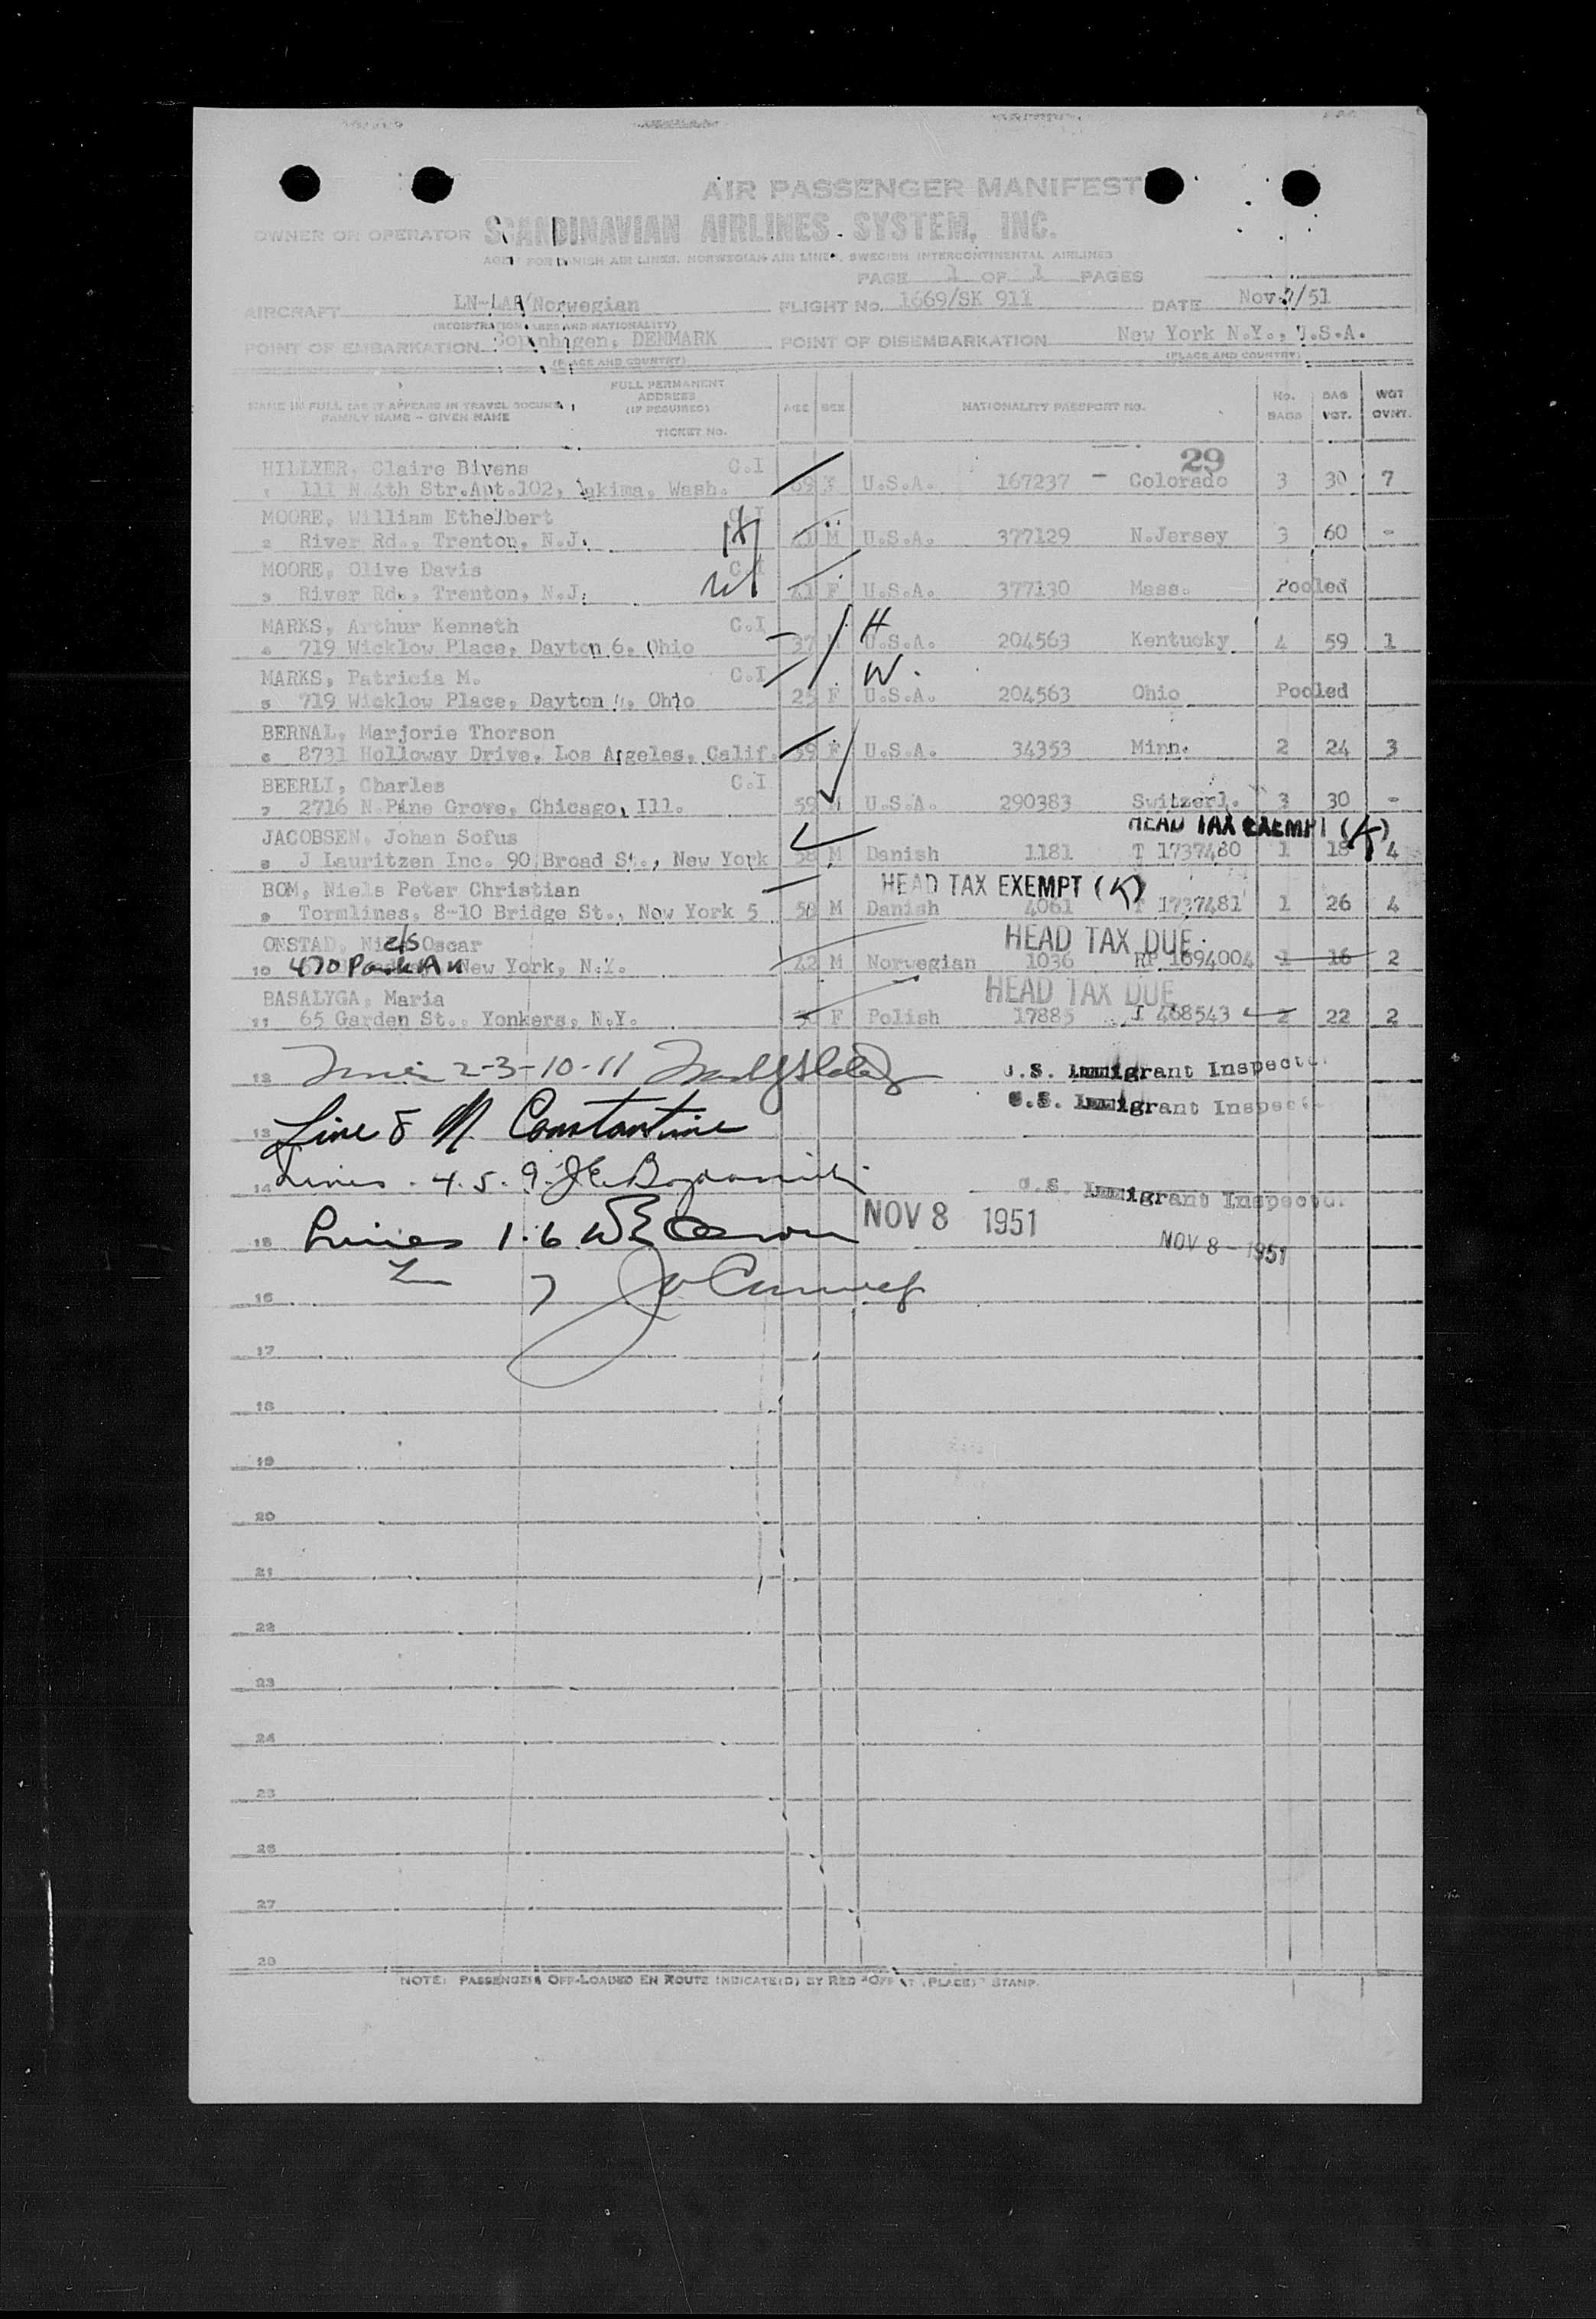 AIR PASSENGER MANIFEST
OWNER OR OPERATOR SCANDINAVIAN AIRLINES SYSTEM, INC.
AGENT FOR DANISH AIR LINES, NORWEGIAN AIR LINES, SWEDISH INTERCONTINENTAL AIRLINES
PAGE 1 OF 1 PAGES
AIRCRAFT Norwegian FLIGHT No. 1669/SK 911 DATE Nov.7/51
(REGISTRATION MARKS AND NATIONALITY)
POINT OF EMBARKATION Copenhagen, DENMARK POINT OF DISEMBARKATION New York N.Y., U.S.A.
(PLACE AND COUNTRY) (PLACE AND COUNTRY)
NAME IN FULL (AS IT APPEARS IN TRAVEL DOCUM.) FAMILY NAME - GIVEN NAME FULL PERMANENT ADDRESS (IF REQUIRED) TICKET No. AGE SEX NATIONALITY PASSPORT NO. No. BAGS BAG WGT. WGT OVWT.
29
HILLYER, Claire Bivens C.I
1 111 N.4th Str.Apt.102, Yakima, Wash. 69 F U.S.A. 167237 - Colorado 3 30 7
MOORE, William Ethelbert C.I
2 River Rd., Trenton, N.J. M U.S.A. 377129 N.Jersey 3 60 -
MOORE, Olive Davis C.I
3 River Rd., Trenton, N.J. F U.S.A. 377130 Mass. Pooled
MARKS, Arthur Kenneth C.I H
4 719 Wicklow Place, Dayton 6, Ohio 37 M U.S.A. 204563 Kentucky 4 59 1
MARKS, Patricia M. C.I W.
5 719 Wicklow Place, Dayton Ohio 25 F U.S.A. 204563 Ohio Pooled
BERNAL, Marjorie Thorson
6 8731 Holloway Drive, Los Angeles, Calif. F U.S.A. 34353 Minn. 2 24 3
BEERLI, Charles C.I
7 2716 N.Pine Grove, Chicago, Ill. 59 M U.S.A. 290383 Switzerl. 3 30 -
JACOBSEN, Johan Sofus HEAD TAX EXEMPT (K)
8 J Lauritzen Inc. 90 Broad St., New York 58 M Danish 1181 T 1737480 1 18 4
BOM, Niels Peter Christian HEAD TAX EXEMPT (K)
9 Tormlines, 8-10 Bridge St., New York 5 58 M Danish 4061 T 1737481 1 26 4
ONSTAD, Oscar HEAD TAX DUE
10 470 Park Av New York, N.Y. 42 M Norwegian 1036 RP 1694004 1 16 2
BASALYGA, Maria HEAD TAX DUE
11 65 Garden St., Yonkers, N.Y. F Polish 17885 I 468543 2 22 2
12 2-3-10-11 U.S. Immigrant Inspector
U.S. Immigrant Inspector
13 Line 8 N. Constantine
14 Lines . 4. 5. 9. U.S. Immigrant Inspector
NOV 8 1951
15 Lines 1.6 NOV 8 - 1951
16 7
17
18
19
20
21
22
23
24
25
26
27
28
NOTE: PASSENGERS OFF-LOADED EN ROUTE INDICATE(D) BY RED "OFF AT (PLACE)" STAMP.